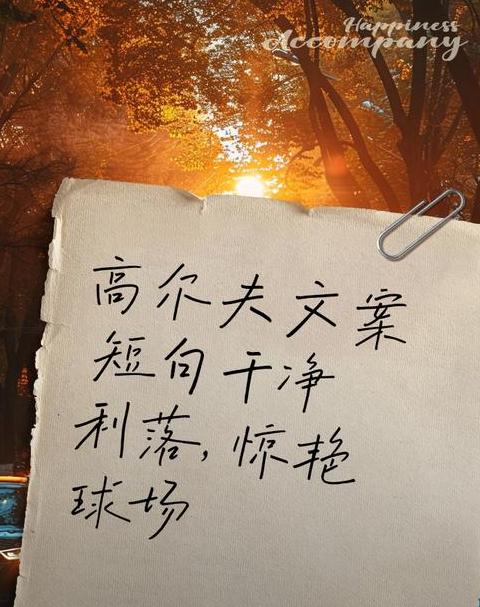 Happiness
Accompany
高尔夫文案
短句干净
利落,惊艳
球场